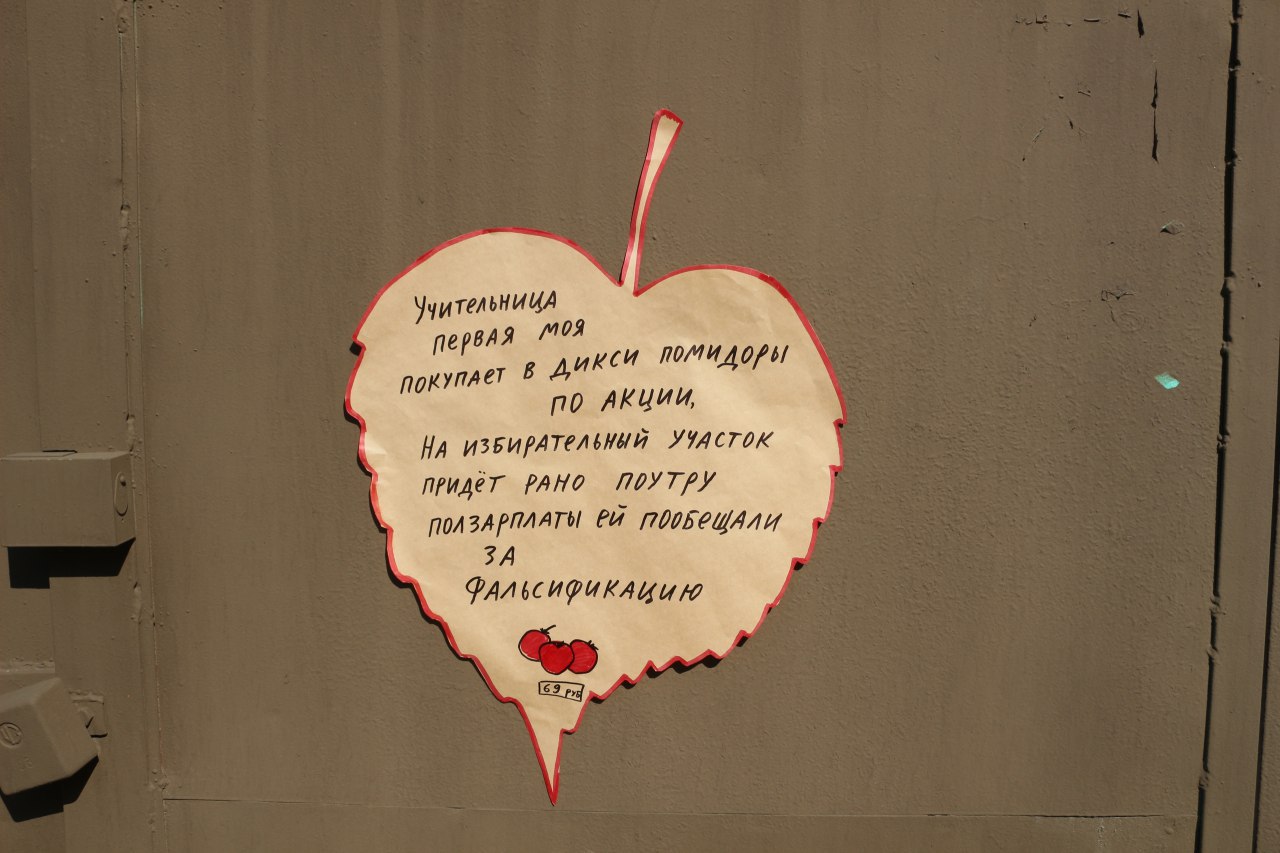 Учительница
первая моя
покупает в Дикси помидоры
по акции,
На избирательный участок
придёт рано поутру
ползарплаты ей пообещали
за
фальсификацию
69 руб